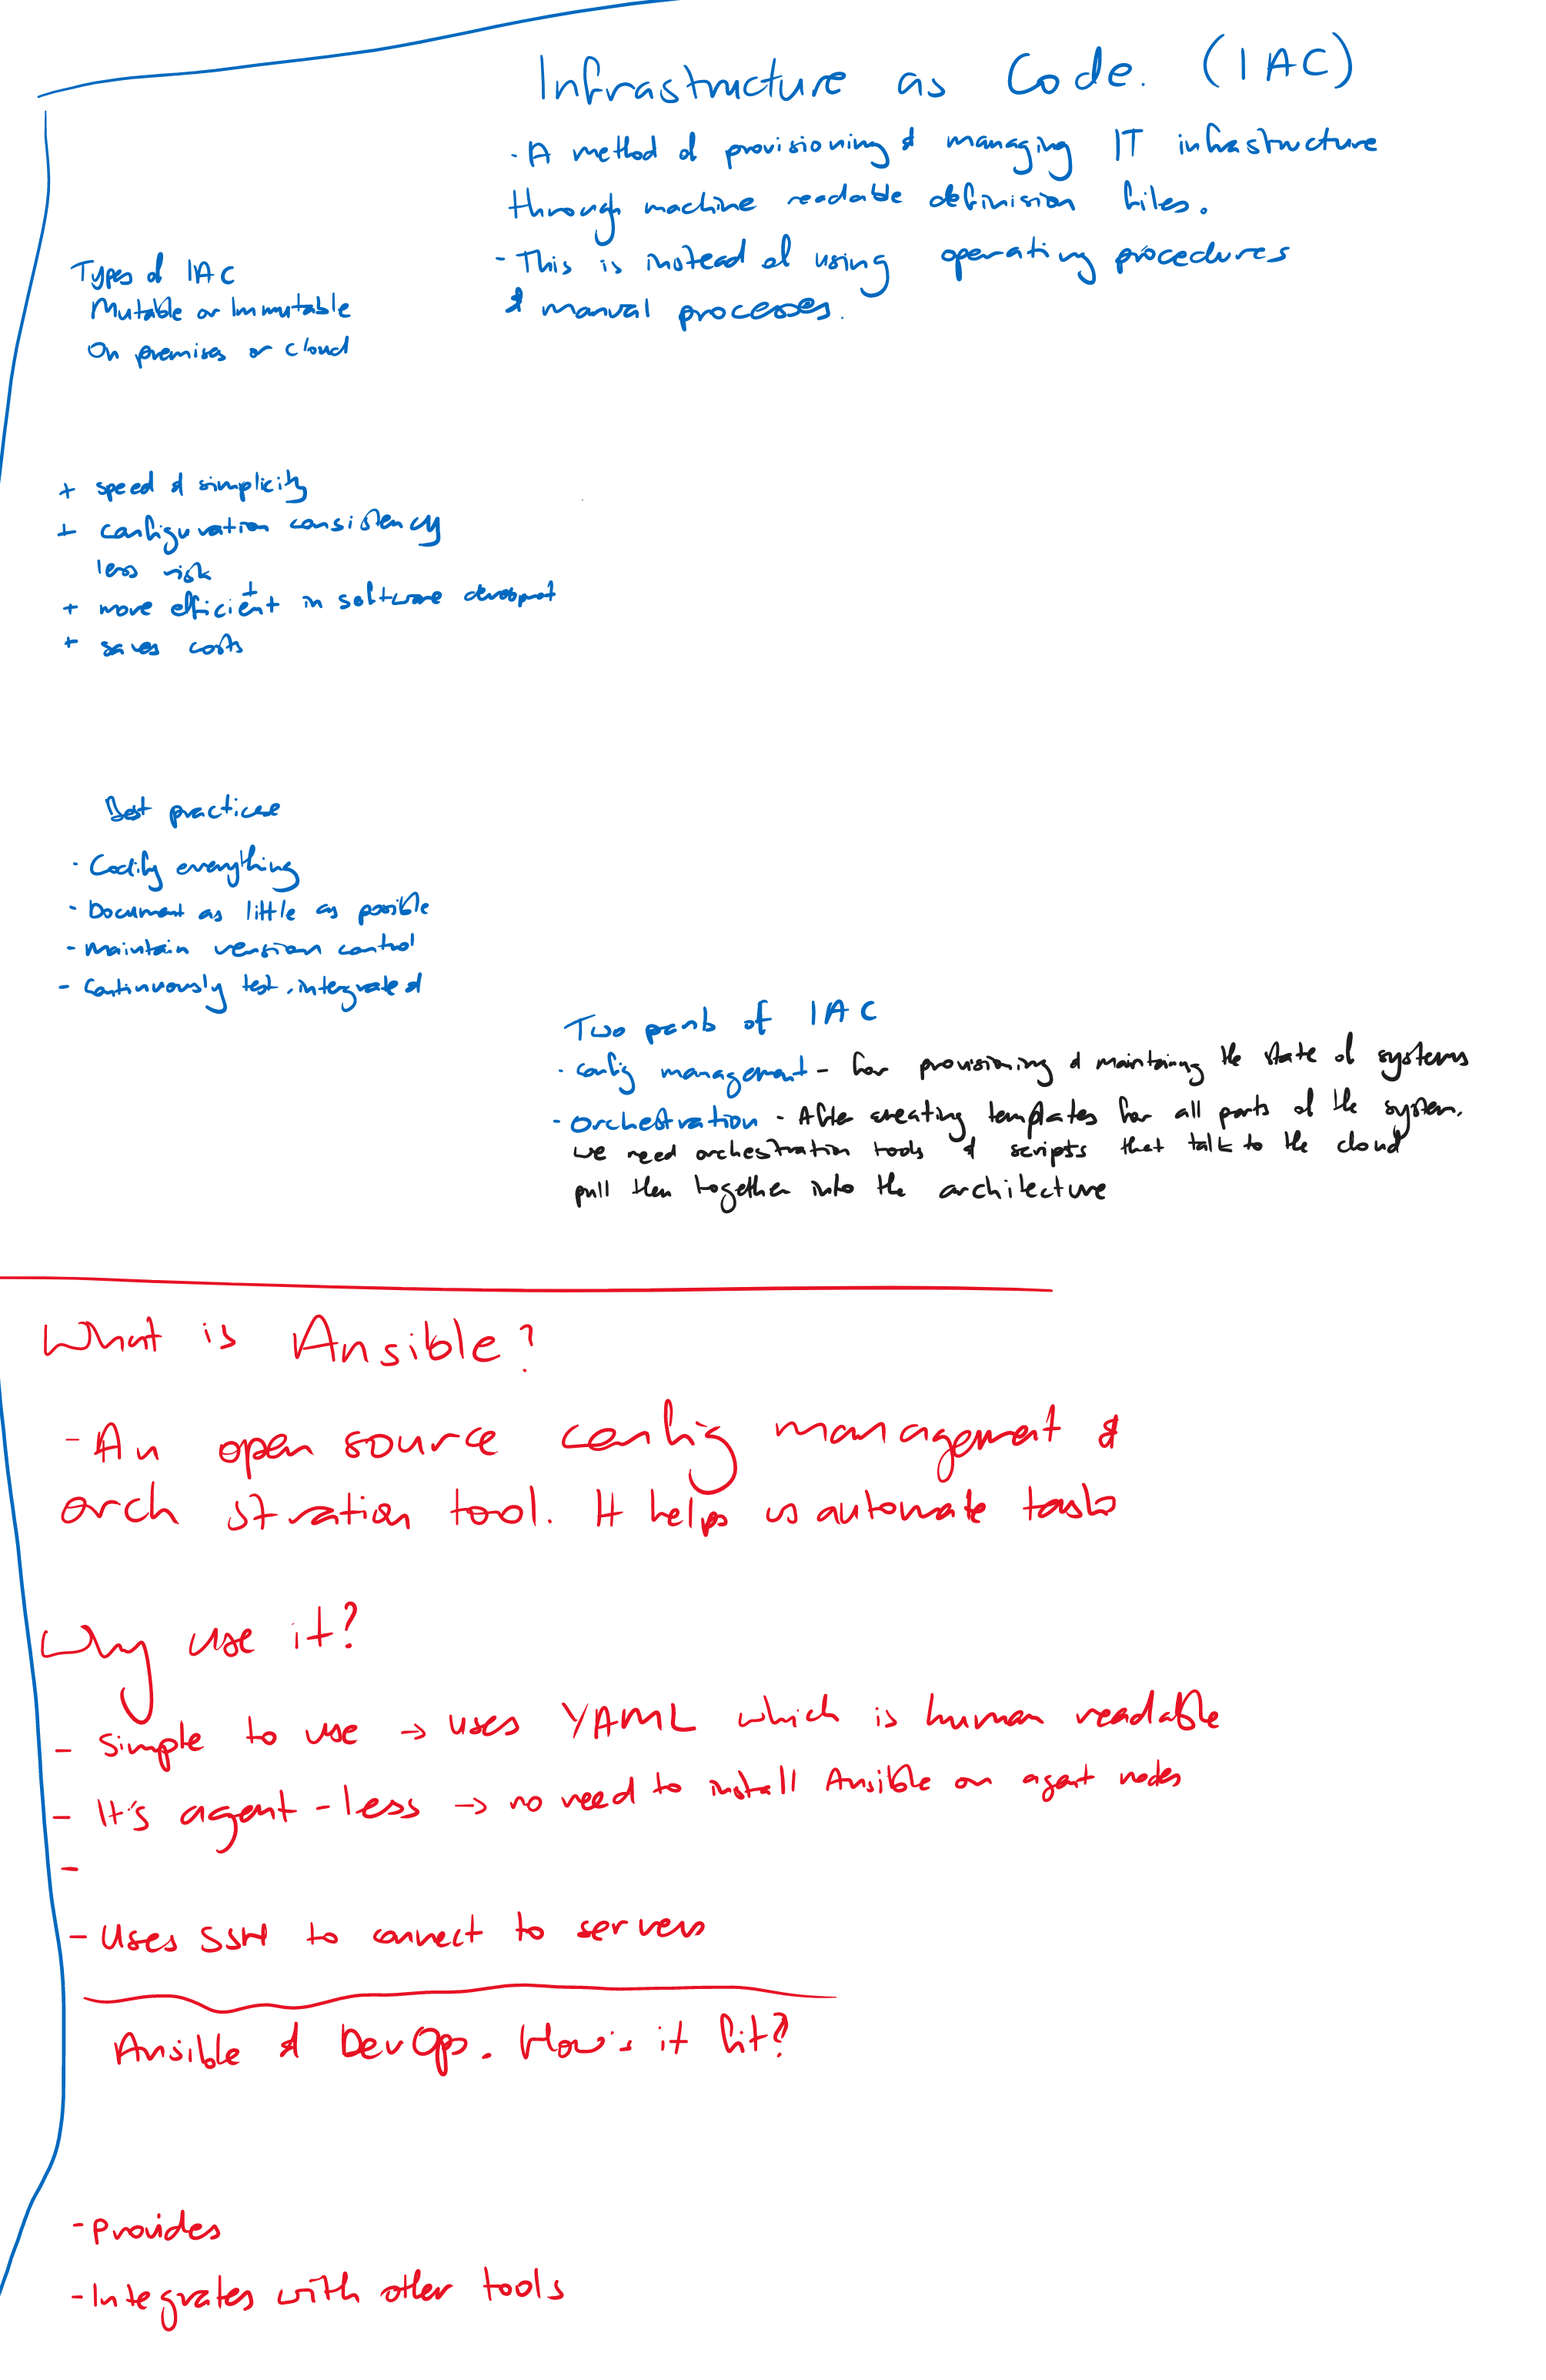 Infrastructure as Code. (IAC)
- A method of provisioning & managing IT infrastructure
through machine readable definision files.
- This is instead of using operating procedures
& manual processes.
Types of IAC
Mutable or Immutable
On premises or cloud
+ speed & simplicity
+ configuration consistency
less risk
+ more efficient in software
+ saves costs
Best practices
- Codify everything
- Document as little as possible
- Maintain version control
- Continuously test, integrate &
Two parts of IAC
- config management - for provisioning & maintaining the state of systems
- Orchestration - After creating templates for all parts of the system,
we need orchestration tools & scripts that talk to the cloud
pull them together into the architecture
What is Ansible?
- An open source config management &
orch stration tool. It helps us automate tasks
Why use it?
- Simple to use → uses YAML which is human readable
- It's agent-less → no need to install Ansible on agent nodes
-
- Uses SSH to connect to servers
Ansible & DevOps. How's it fit?
- Provides
- Integrates with other tools